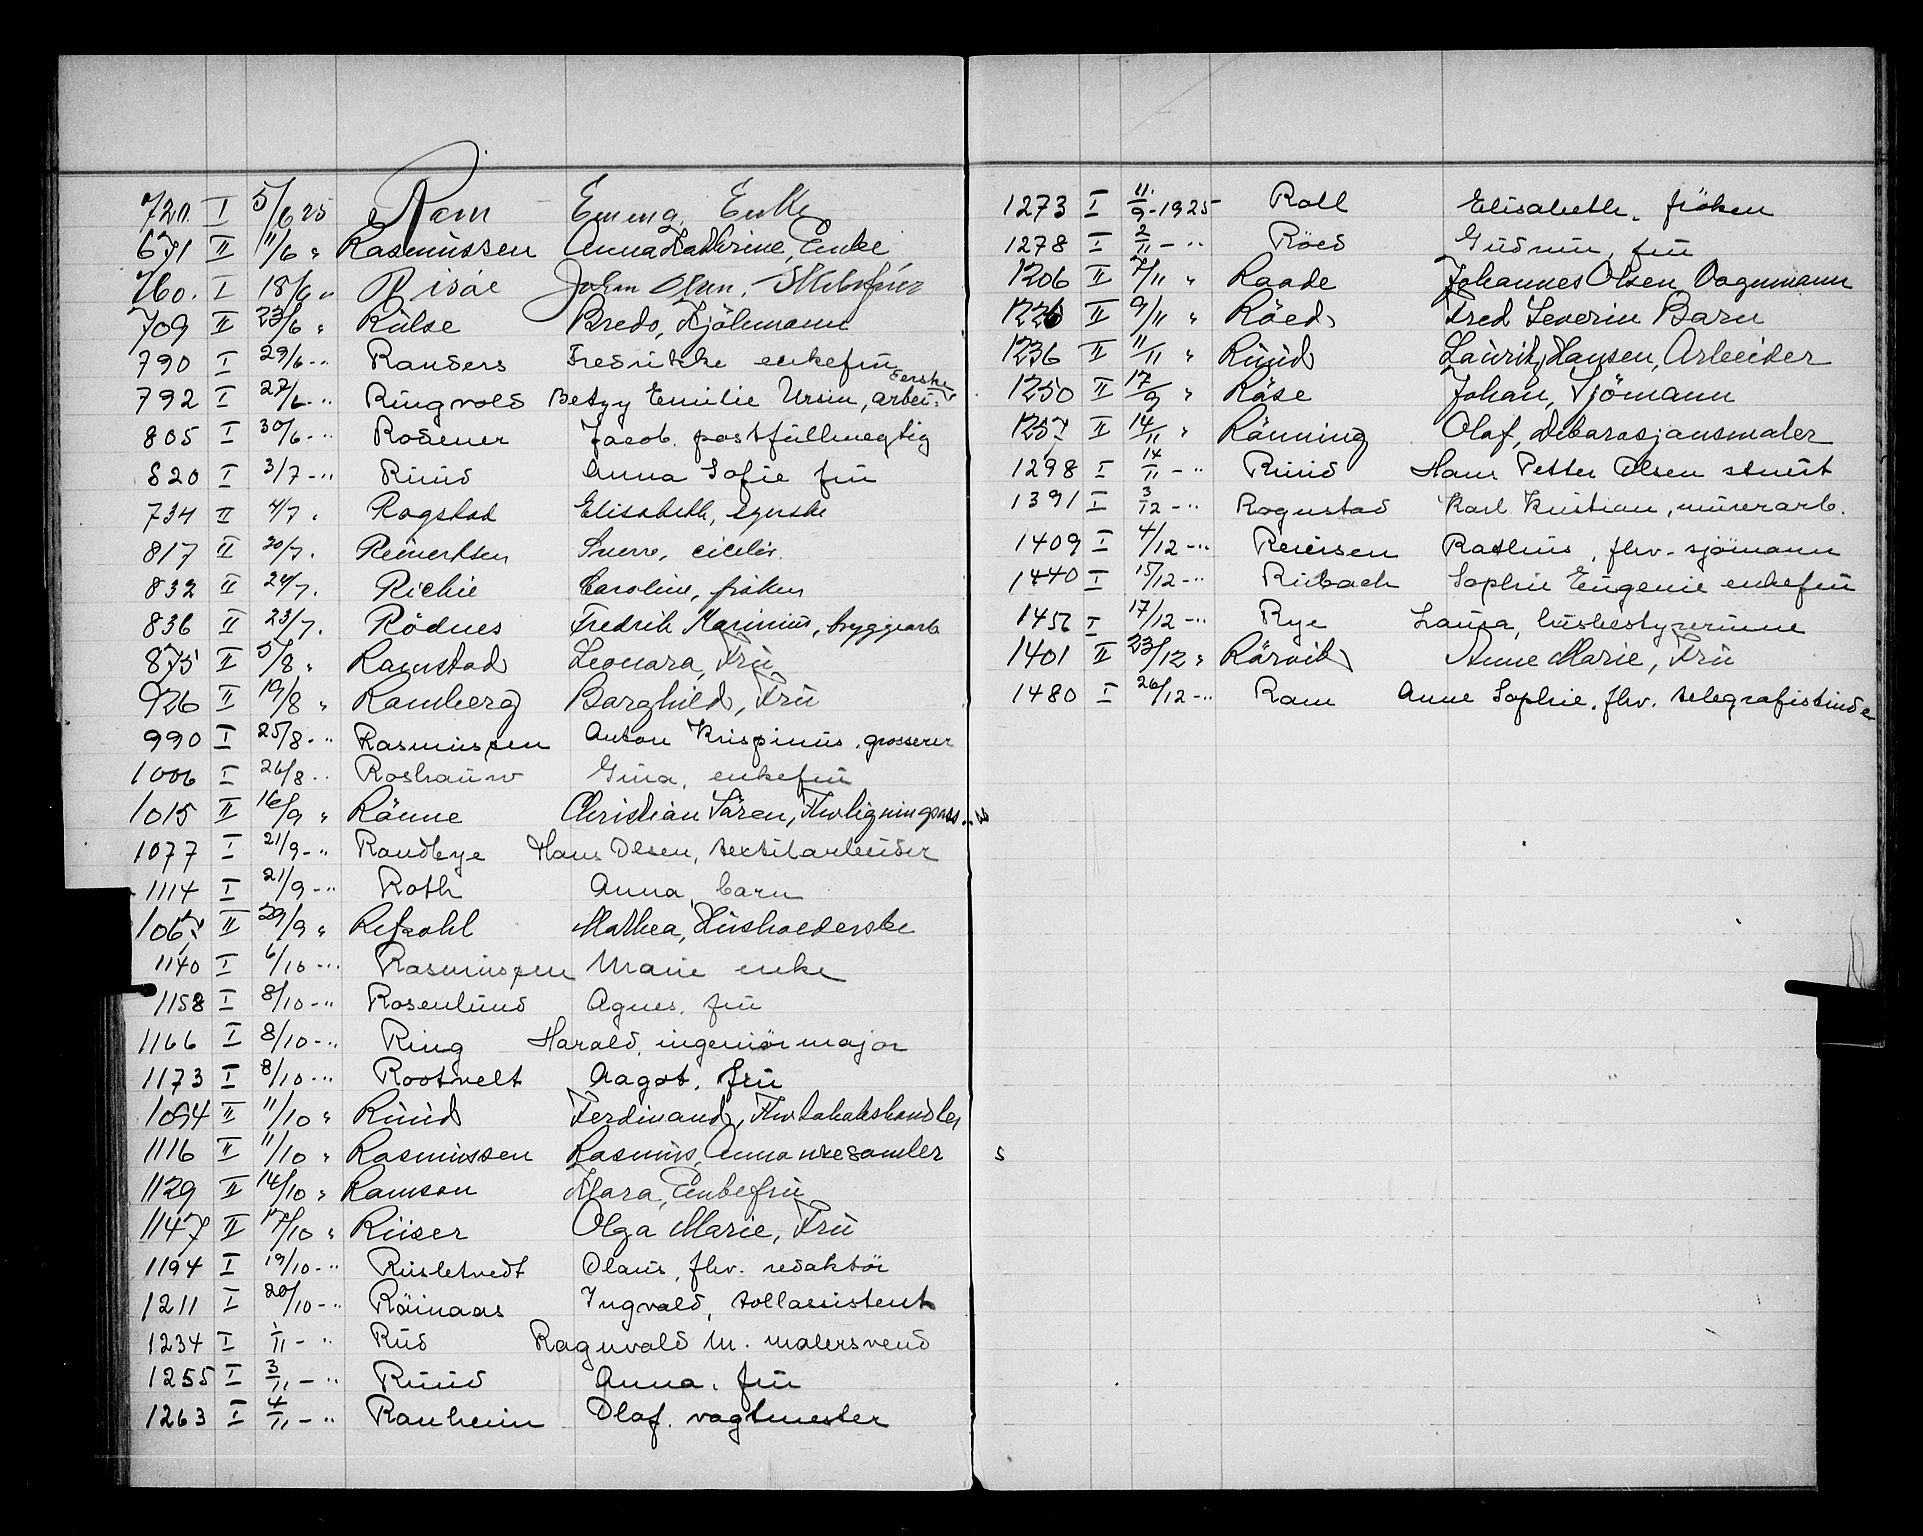 720. I 5/6 25 Ram Emma, Enke
671 II 11/6 " Rasmussen Anna Kathrine, Enke
760. I 18/6 " Risøe Johan Olsen.
709 II 23/6 " Rülse Bredo, Sjömann
790 I 29/6-" Randers Fredrikke enkefrü
792 I 27/6-" Ringvold Betzy Emilie Ursin, arbei-derske
805 I 30/6-" Rodener Jacob. postfüllmegtig
820 I 3/7-" Rüüd Anna Sofie frü
734 II 4/7 " Rogstad Elisabeth, syerske
817 II 20/7. Reinertsen Sverre,
832 II 24/7. Richie Caroline, fröken
836 II 23/7. Rödnes Fredrik Marinius, bryggearb
875 II 5/8 " Ramstad Leonora, Frü
926 II 19/8 " Ramberg Borghild, Frü
990 I 25/8-" Rasmussen Anton Krispinus, grosserer
1006 I 26/8-" Roshauw Gina, enkefrü
1015 II 16/9 " Rönne Christian Sören, Fhv ligningsass..
1077 I 21/9-" Randbye Hans Olsen, textilarbeider
1114 I 21/9-" Roth Anna, barn
1067 II 29/9 " Refsahl Mathea, Hüsholderske
1140 I 6/10-" Rasmussen Marie enke
1158 I 8/10-" Rosenlund Agnes, frü
1166 I 8/10-" Ring Harald, ingeniör major
1173 I 8/10-" Rootwelt Aagot, frü
1094 II 11/10 " Rüüd Ferdinand, Fhv tobakshandler
1116 II 11/10 " Rasmussen Rasmus, Annonsesamler s
1129 II 14/10 " Ramson Mara, Enkefrü
1147 II 17/10 " Riiser Olga Marie, Frü
1194 I 19/10-" Rüsletvedt Olaus, fhv. redaktör
1211 I 20/10-" Röinaas Ingvald, tollassistent
1234 I 1/11-" Rüd Ragnvald M. malersvend
1255 I 3/11-" Rüüd Anna. frü
1263 I 4/11-" Ranheim Olaf. vagtmester
1273 I 11/9-1925 Roll Elisabeth, fröken
1278 I 2/11-" Röed Güdrün, frü
1206 II 7/11 " Raade Johannes Olsen Vognmann
1226 II 9/11 " Röed Fred Severin Barn
1236 II 11/11 " Rüüd Lauritz Hansen, Arbeider
1250 II 17/9 " Röse Johan, Sjömann
1257 II 14/11 " Rönning Olaf, Dekorasjonsmaler
1298 I 14/11-" Rüüd Hans Petter Olsen stuert
1391 I 3/12-" Rognstad Karl Kristian, mürerarb.
1409 I 4/12-" Reiersen Rathus, fhv. sjömann
1440 I 15/12-" Riibach Sophie Eugenie enkefrü
1456 I 17/12-" Rye Laura, hüsbestyrerinne
1401 II 23/12 " Rörvik Anne Marie, Frü
1480 I 26/12-" Ram Anne Sophie, fhv. telegrafistinde